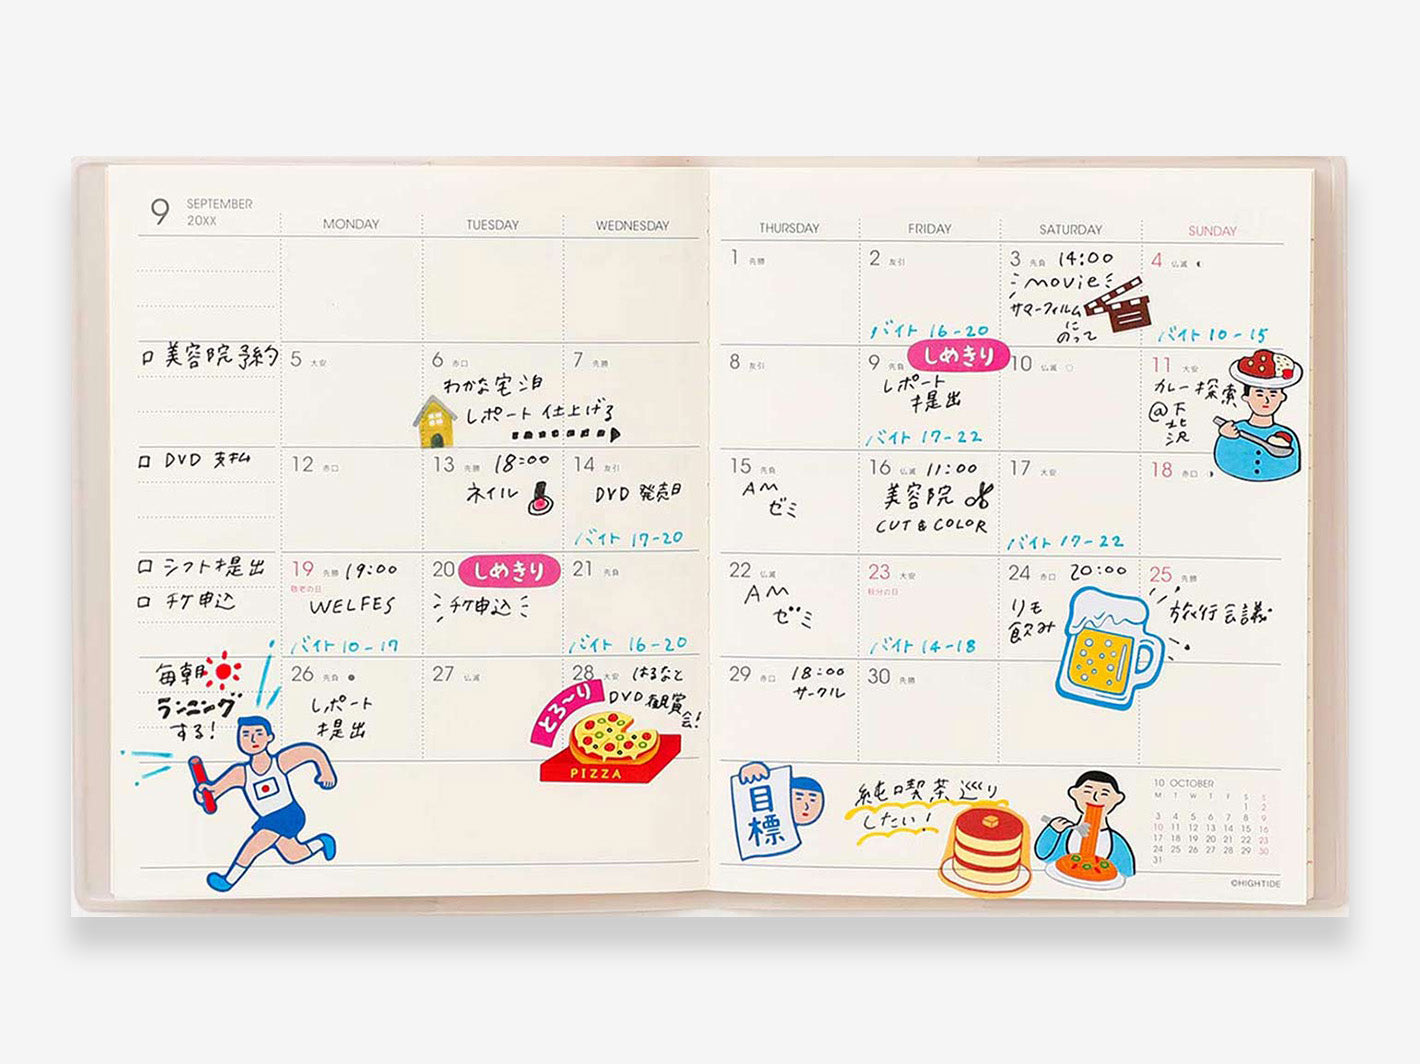 9 SEPTEMBER
20XX
MONDAY TUESDAY WEDNESDAY THURSDAY FRIDAY SATURDAY SUNDAY
1 先勝
2 友引
バイト 16-20
3 先負 14:00
movie
サマーフィルム
に
のって
4 仏滅
バイト 10-15
美容院予約
5 大安
6 赤口
わかな宅泊
レポート仕上げる
7 先勝
8 友引
9 先負
しめきり
レポート
提出
バイト 17-22
10 仏滅
11 大安
カレー探索
@下
北
沢
DVD 支払
12 赤口
13 先勝 18:00
ネイル
14 友引
DVD 発売日
バイト 17-20
15 先負
AM
ゼミ
16 仏滅 11:00
美容院
CUT & COLOR
17 大安
バイト 17-22
18 赤口
シフト提出
チケ申込
19 先勝 19:00
敬老の日
WELFES
バイト 10-17
20
しめきり
チケ申込
21 先負
バイト 16-20
22 仏滅
AM
ゼミ
23 大安
秋分の日
バイト 14-18
24 赤口 20:00
リモ
飲み
25 先勝
旅行会議
毎朝
ランニング
する!
26 先負
レポート
提出
27 仏滅
28 大安 はるなと
DVD観賞
会!
とろ〜り
PIZZA
29 赤口 18:00
サークル
30 先勝
目標
純喫茶巡り
したい!
10 OCTOBER
M T W T F S S
1 2
3 4 5 6 7 8 9
10 11 12 13 14 15 16
17 18 19 20 21 22 23
24 25 26 27 28 29 30
31
©HIGHTIDE